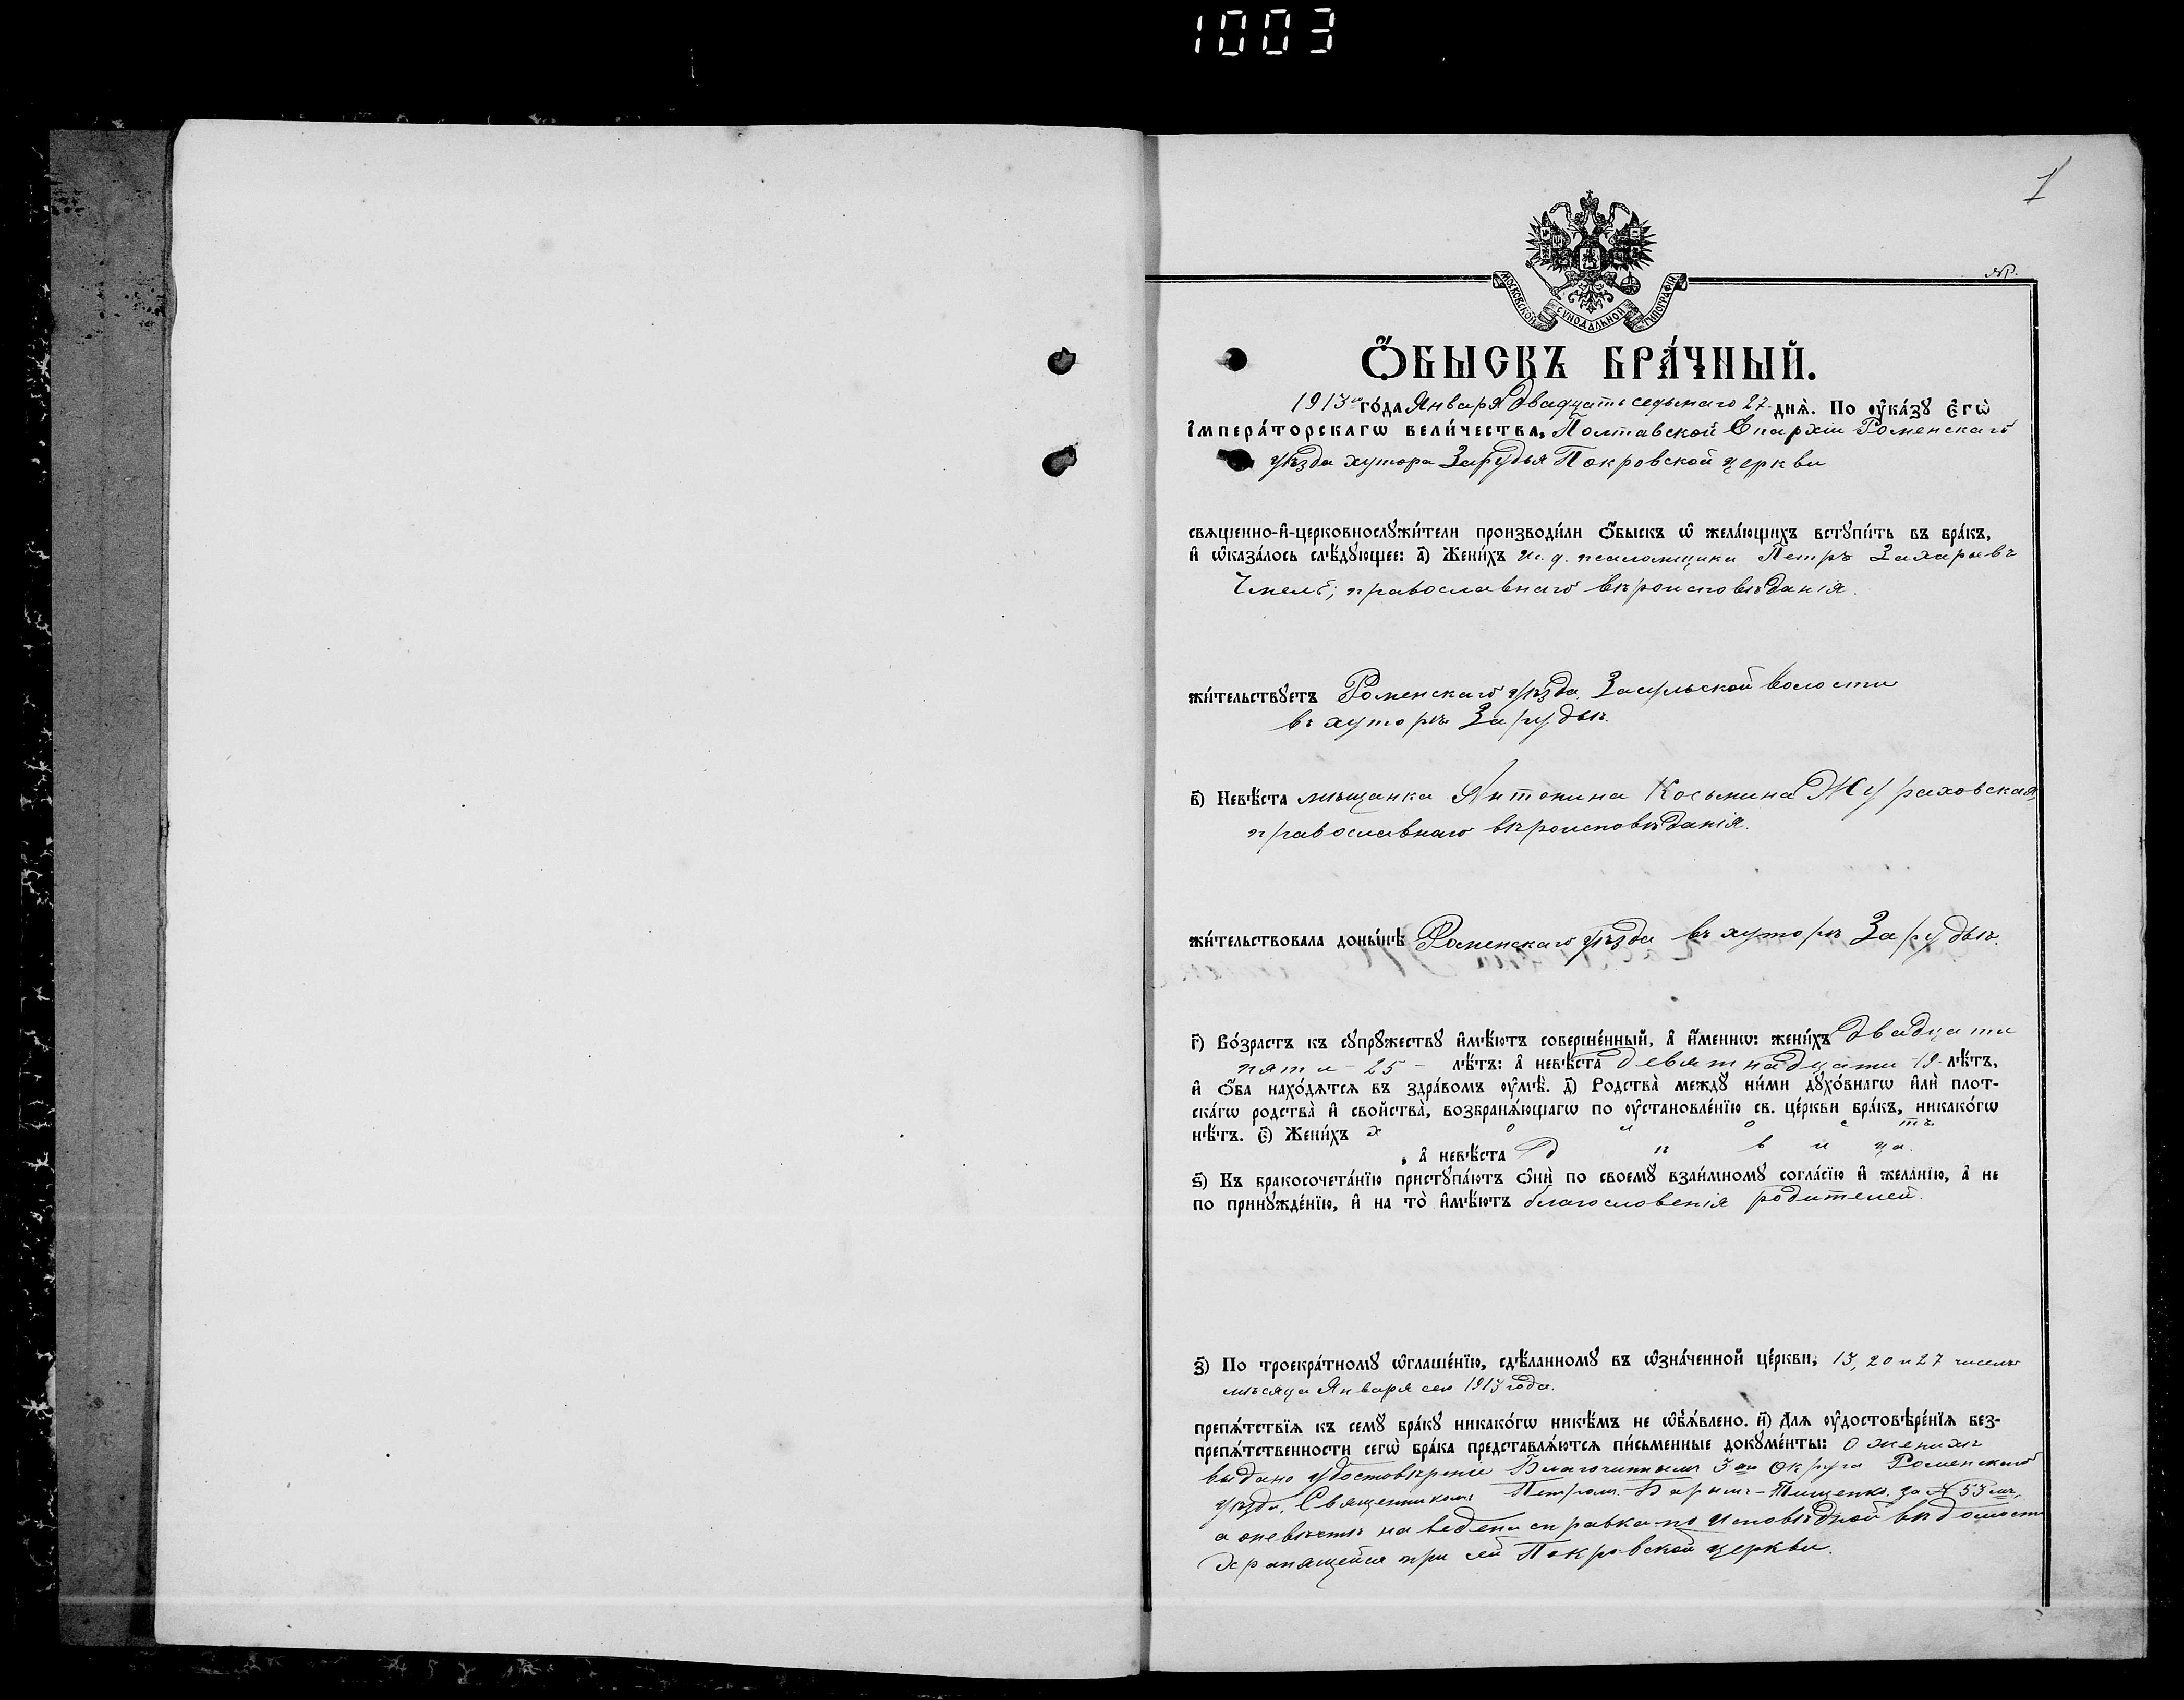 1003
1
№.
МОСКОВСКОЙ СУНОДАЛЬНОЙ ТИПОГРАФІИ
Ѻ҆́БЫСКЪ БРА́ЧНЫЙ.
1913 го́да Января двадцать седьмаго 27 днѧ̀. По ᲂу҆ка́зꙋ Е҆гѡ̀
І҆мпера́торскагѡ вели́чества, Полтавской Епархіи Роменскаго
уѣзда хутора Зарудья Покровской церкви
свѧщенно-и҆-церковнослꙋжи́тели производи́ли ѻ҆́быскъ ѡ҆ жела́ющихъ встꙋпи́ть въ бра́къ,
и҆ ѡ҆каза́лось слѣ́дꙋющее: а҃) Жени́хъ и. д. псаломщика Петръ Захарьевъ
Чмель; православнаго вѣроисповѣданія.
жи́тельствꙋетъ Роменскаго уѣзда, Засульской волости
въ хуторѣ Зарудьи.
в҃) Невѣ́ста мѣщанка Антонина Косьмина Жураховская,
православнаго вѣроисповѣданія.
жи́тельствовала доны́нѣ Роменскаго уѣзда въ хуторѣ Зарудьи.
г҃) Во́зрастъ къ сꙋпрꙋжествꙋ и҆мѣ́ютъ соверше́нный, а҆ и҆́менно: жени́хъ двадцати
пяти - 25 - лѣ́тъ: а҆ невѣ́ста девятнадцати 19 лѣ́тъ,
и҆ ѻ҆́ба нахо́дѧтсѧ въ здра́вомъ ᲂу҆мѣ̀. д҃) Родства̀ междꙋ ни́ми дꙋхо́внагѡ и҆лѝ плот-
ска́гѡ родства̀ и҆ сво́йства̀, возбранѧ́ющагѡ по ᲂу҆становле́нїю св. це́ркви бра́къ, никако́гѡ
нѣ́тъ. є҃) Жени́хъ х о л о с тъ
, а҆ невѣ́ста д ѣ в и ца.
ѕ҃) Къ бракосочета́нїю пристꙋпа́ютъ ѻ҆нѝ по своемꙋ̀ взаи́мномꙋ согла́сїю и҆ жела́нїю, а҆ не
по принꙋжде́нїю, и҆ на то̀ и҆мѣ́ютъ благословенія родителей.
з҃) По троекра́тномꙋ ѡ҆глаше́нїю, сдѣ́ланномꙋ въ ѡ҆зна́ченной це́ркви, 13, 20 и 27 числъ
мѣсяца Января сего 1913 года.
препѧ́тствїѧ къ семꙋ̀ бра́кꙋ никако́гѡ никѣ́мъ не ѡ҆б̾ѧ́влено. и҃) Для ᲂу҆достовѣре́нїѧ без-
препѧ́тственности сегѡ̀ бра́ка представлѧ́ютсѧ пи́сьменные докꙋме́нты: о женихѣ
выдано удостовѣреніе Благочиннымъ 3го Округа Роменскаго
уѣзда, Священникомъ Петромъ Барышъ-Тищенко за № 53мъ,
а о невѣстѣ наведена справка по исповѣдной вѣдомости
хранящейся при сей Покровской церкви.